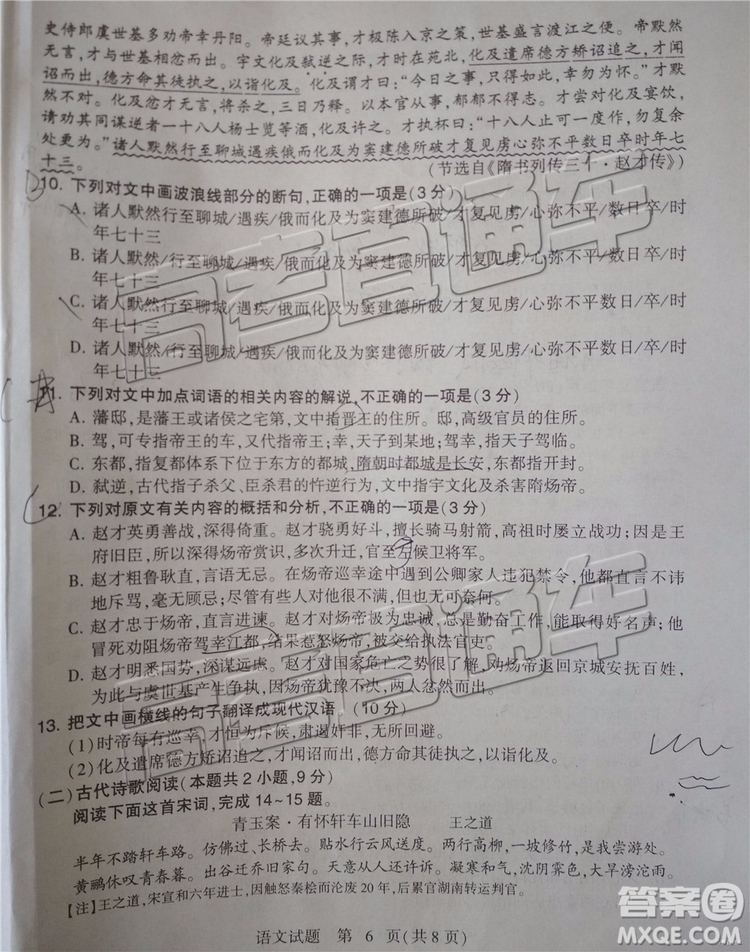 史侍郎虞世基多劝帝幸丹阳。帝廷议其事,才极陈入京之策,世基盛言渡江之便。帝默然
无言,才与世基相忿而出。宇文化及弑逆之际,才时在苑北,化及遣席德方矫诏追之,才闻
诏而出,德方命其徒执之,以诣化及。化及谓才曰:“今日之事,只得如此,幸勿为怀。”才默
然不对。化及忿才无言,将杀之,三日乃释。以本官从事,郁郁不得志。才尝对化及宴饮,
请劝其同谋逆者一十八人杨士览等酒,化及许之。才执杯曰:“十八人止可一度作,勿复余
处更为。”诸人默然行至聊城遇疾俄而化及为窦建德所破才复见虏心弥不平数日卒时年七
十三。
(节选自《隋书列传三十·赵才传》)
10. 下列对文中画波浪线部分的断句,正确的一项是(3分)
A. 诸人默然行至聊城/遇疾/俄而化及为窦建德所破/才复见虏/心弥不平/数日卒/时
年七十三
B. 诸人默然/行至聊城/遇疾/俄而化及为窦建德所破/才复见虏/心弥不平/数日卒/时
年七十三
C. 诸人默然/行至聊城/遇疾/俄而化及为窦建德所破/才复见虏/心弥不平数日/卒/时
年七十三
D. 诸人默然行至聊城/遇疾/俄而化及为窦建德所破/才复见虏/心弥不平数日/卒/时
年七十三
11. 下列对文中加点词语的相关内容的解说,不正确的一项是(3分)
A. 藩邸,是藩王或诸侯之宅第,文中指晋王的住所。邸,高级官员的住所。
B. 驾,可专指帝王的车,又代指帝王;幸,天子到某地;驾幸,指天子驾临。
C. 东都,指复都体系下位于东方的都城,隋朝时都城是长安,东都指开封。
D. 弑逆,古代指子杀父、臣杀君的忤逆行为,文中指宇文化及杀害隋炀帝。
12. 下列对原文有关内容的概括和分析,不正确的一项是(3分)
A. 赵才英勇善战,深得倚重。赵才骁勇好斗,擅长骑马射箭,高祖时屡立战功;因是王
府旧臣,所以深得炀帝赏识,多次升迁,官至右候卫将军。
B. 赵才粗鲁耿直,言语无忌。在炀帝巡幸途中遇到公卿家人违犯禁令,他都直言不讳
地斥骂,毫无顾忌;尽管有人对他很不满,但也无可奈何。
C. 赵才忠于炀帝,直言进谏。赵才为炀帝极为忠诚,总是勤奋工作,能取得好成绩;他
冒死劝阻炀帝驾幸江都,结果惹怒炀帝,被交给执法官吏。
D. 赵才明悉国势,深谋远虑。赵才对国家危亡之势很了解,劝炀帝返回京城安抚百姓,
为此与虞世基产生争执,因炀帝犹豫不决,两人愤然离去。
13. 把文中画横线的句子翻译成现代汉语。(10分)
(1)时帝每有巡幸,才恒为斥候,肃遏奸非,无所回避。
(2)化及遣席德方矫诏追之,才闻诏而出,德方命其徒执之,以诣化及。
(二)古代诗歌阅读(本题共2小题,9分)
阅读下面这首宋词,完成14~15题。
青玉案·有怀轩车山旧隐 王之道
半年不踏轩车路。仿佛过、长桥去。贴水行云风送度。两行高柳,一坡修竹,是我尝游处。
黄鹂休叹青春暮。出谷迁乔旧家句。谢尽残花风不住。凝寒为雨,沈阴雾色,大旱滂沱雨。
[注]王之道,宋宣和六年进士,因触怒秦桧而沦废20年,后累官湖南转运判官。
语文试题 第 6 页(共8页)
高考直通车
高考直通车
答案圈
MXQE.COM